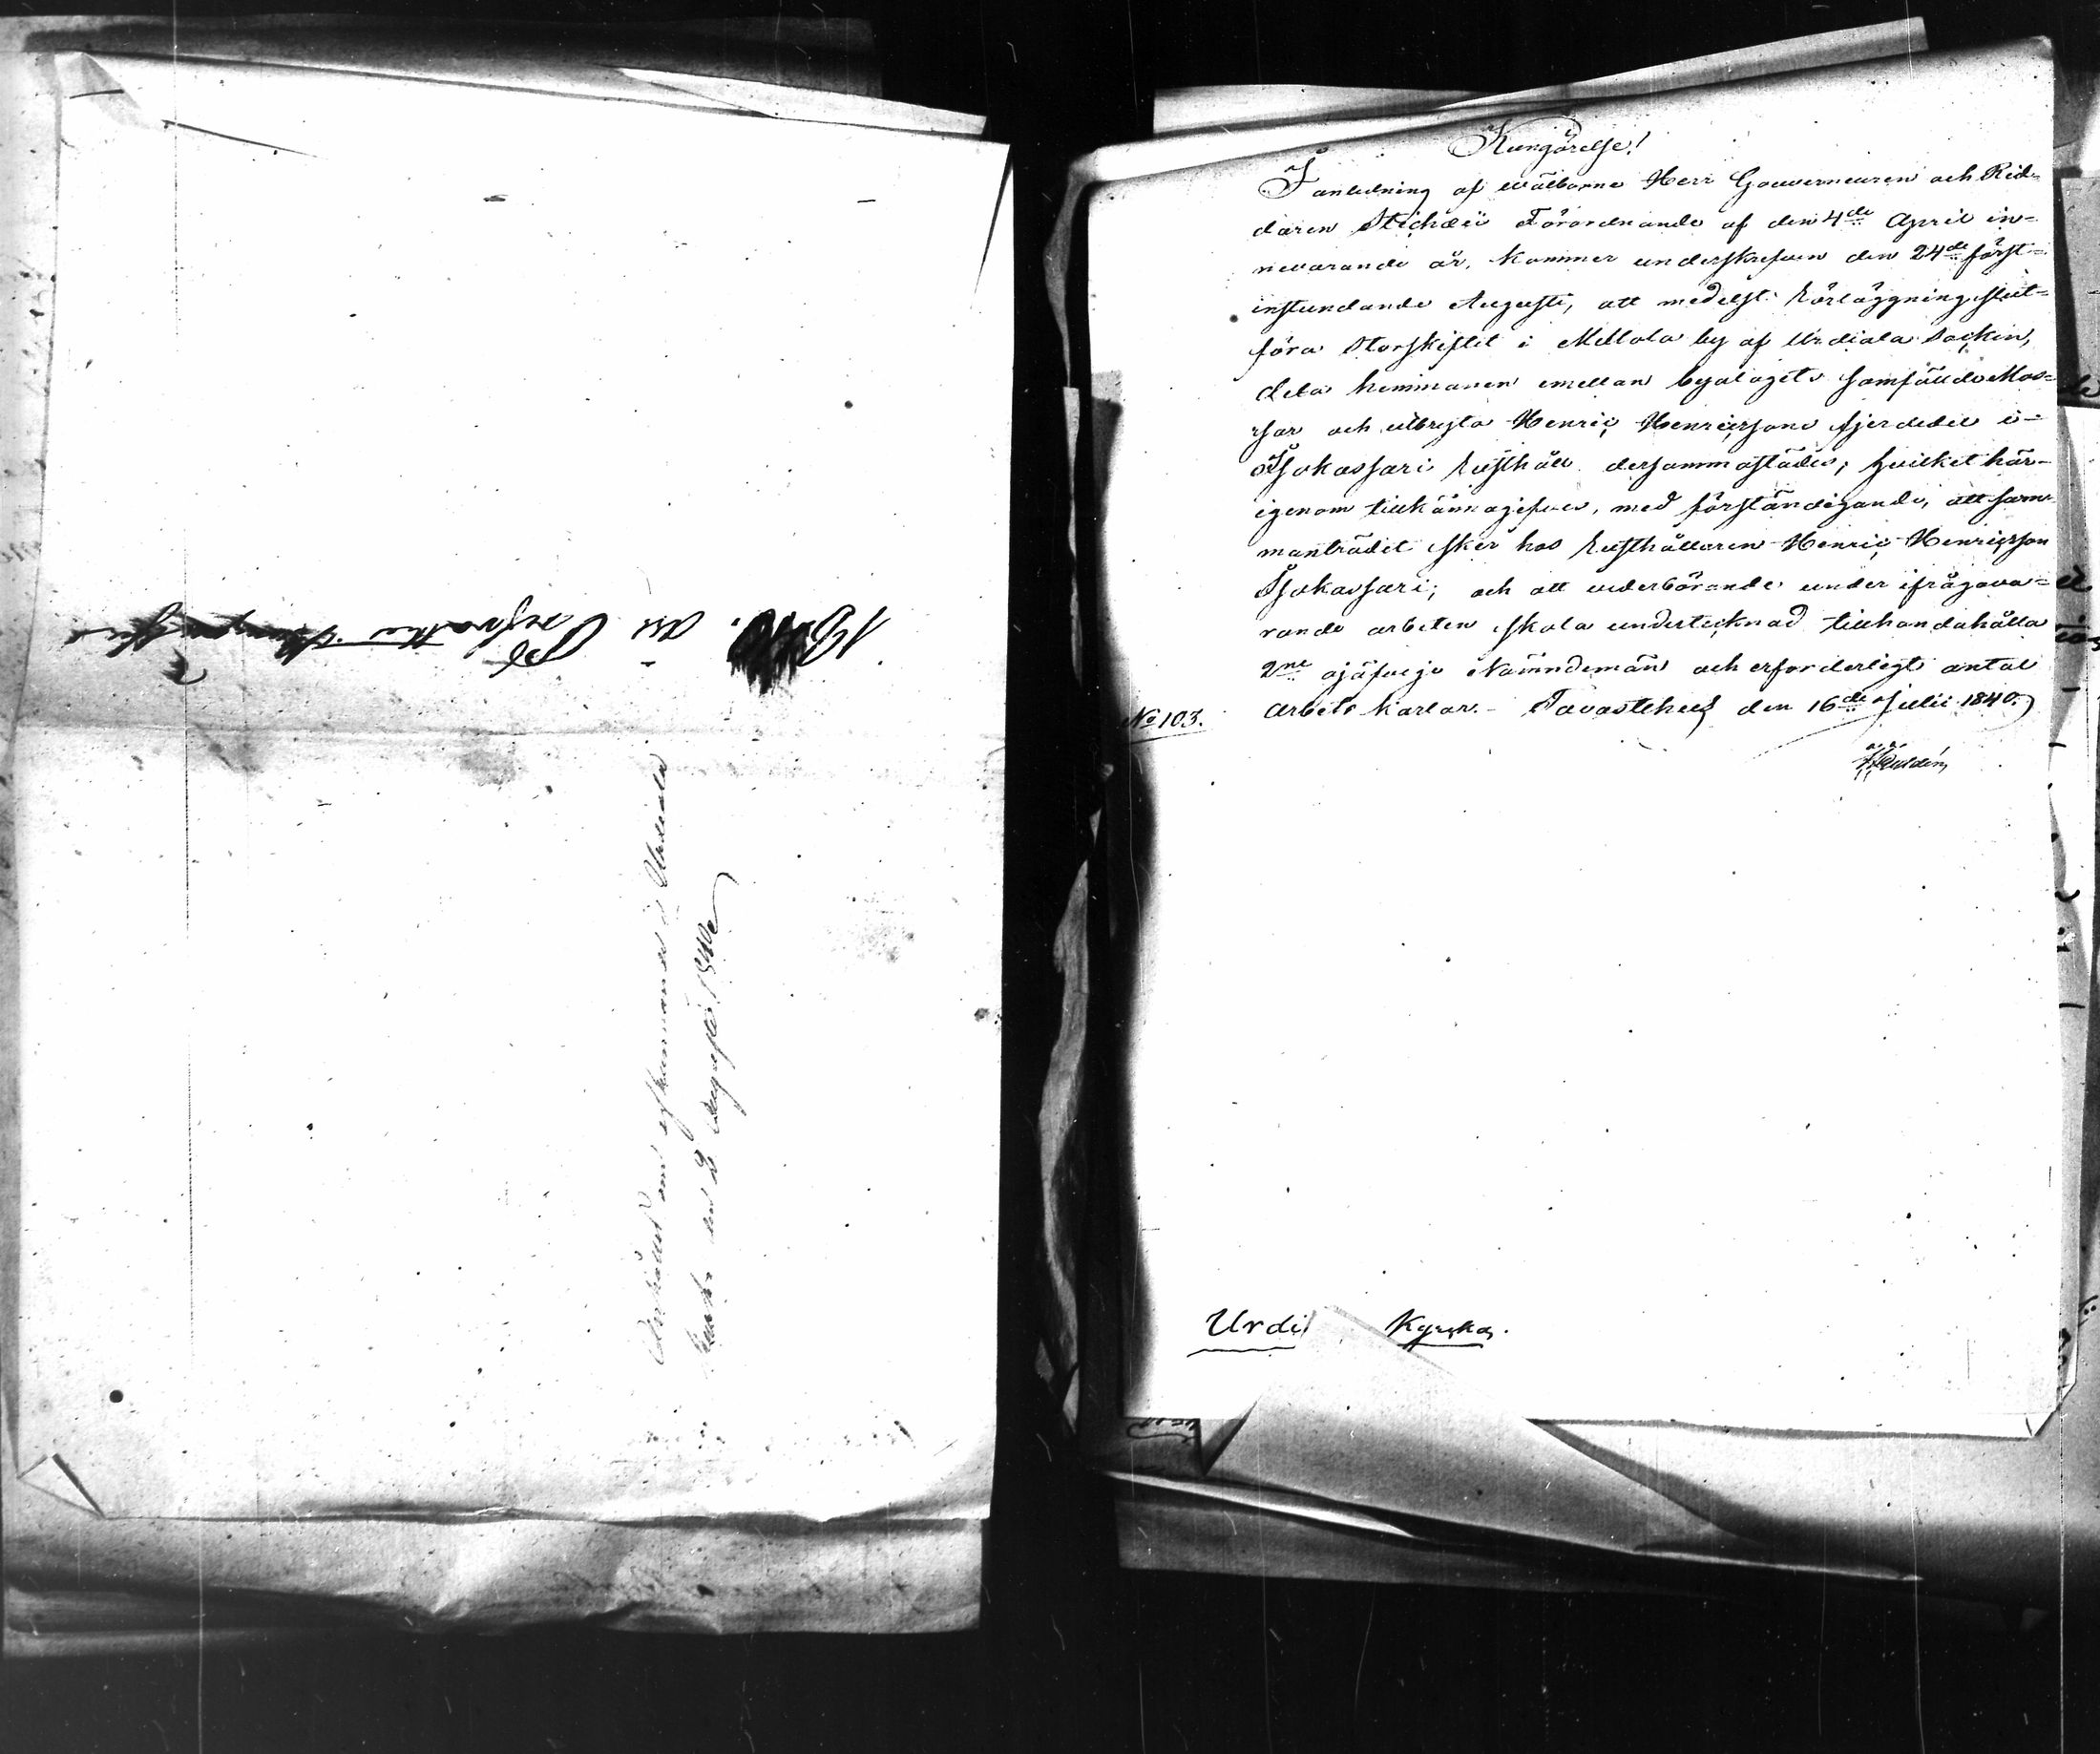 1840. den
om efterkommande i Urdiala
den 2 Augusti 1840
Kungörelse!
I anledning af wälborne Herr Gouverneuren och Rid-
daren Stichæi Förordnande af den 4de April in-
nevarande år, kommer underskrefven den 24de först-
instundande Augusti, att medelst rörläggning slut-
föra Storskiftet i Mellola by af Urdiala Sockin,
dela hemmanen emellan byalagets samfäldo Mos-
sar och utbryta Henric Henricssons fjerdedel i
Isokassari rusthåll dersammastädes; hvilket här-
igenom tillkännagifves, med förständigande, att sam-
manträdet sker hos rusthållaren Henric Henricsson
Isokassari; och att vederbörande under ifrågava-
rande arbeten skola undertecknad tillhandahålla
2ne ojäfvige Nämndemän och erforderligt antal
arbets karlar. - Tavastehus den 16de Julii 1840.
No 103.
Urdi Kyrcka.